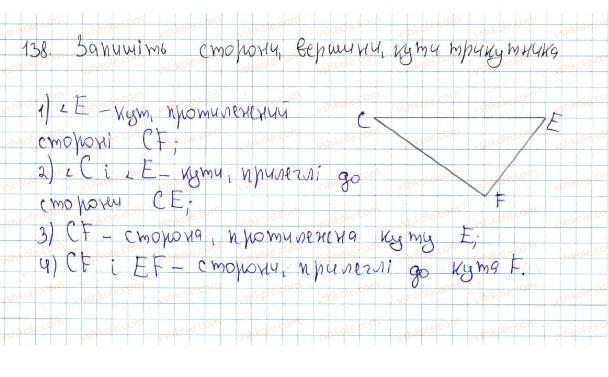 138. Запишіть сторони, вершини, кути трикутника
1) ∠E – кут, протилежний
стороні CF;
2) ∠C і ∠E – кути, прилеглі до
сторони CE;
3) CF – сторона, протилежна куту E;
4) CF і EF – сторони, прилеглі до кута F.
C
E
F